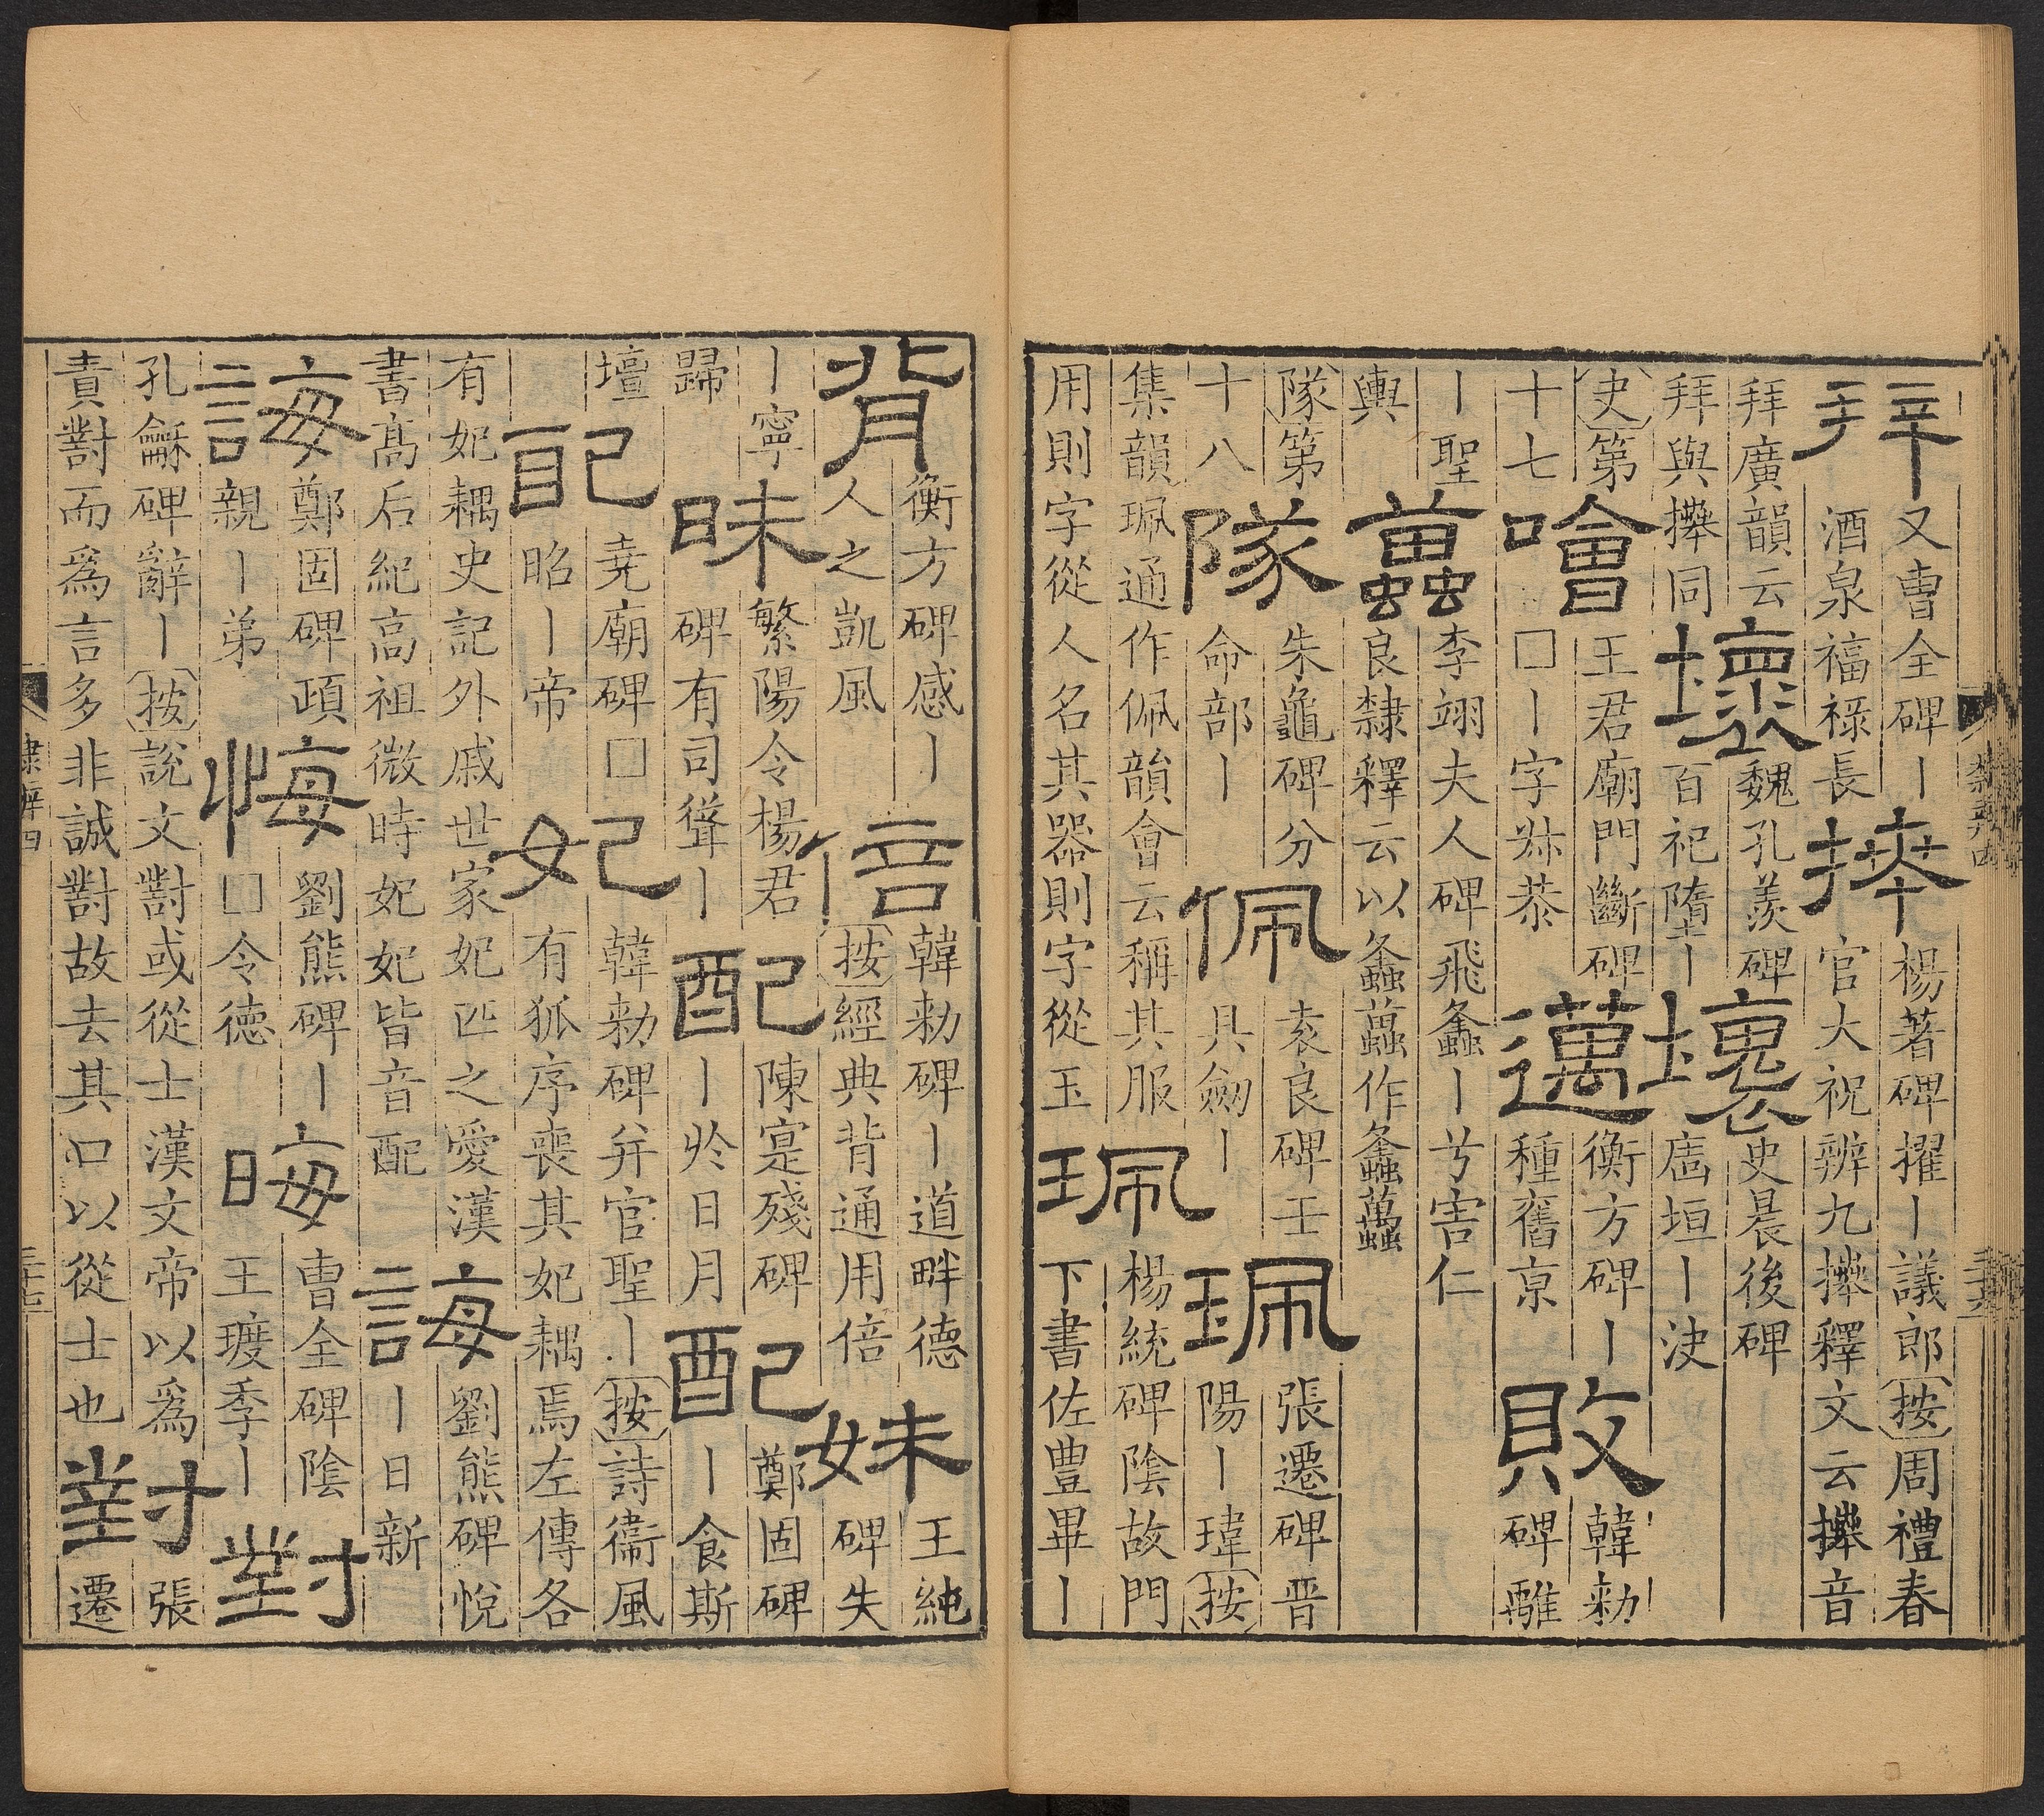 拜
又曹全碑丨
酒泉福祿長
捧
楊著碑擢丨議郎按周禮春
官大祝辨九𢷎釋文云𢷎音
拜廣韻云
拜與𢷎同
壞
魏孔羨碑
百祀墮丨
壞
史晨後碑
垣丨決
史第
十七
噲
王君廟門斷碑
□丨字叔恭
邁
衡方碑丨
種舊京
敗
韓勑
碑離
丨聖
輿
蠆
李翊夫人碑飛螽丨兮害仁
良隸釋云以螽蠆作螽蠆
隊第
十八
隊
朱龜碑分
命部丨
佩
袁良碑王
具劒丨
珮
張遷碑晋
陽丨瑋按
集韻珮通作佩韻會云稱其服
用則字從人名其器則字從玉
珮
楊統碑陰故門
下書佐豊畢丨
隸辨四
三十六
背
衡方碑感丨
人之凱風
倍
韓勑碑丨道畔德
按經典背通用倍
妹
王純
碑失
丨寧
歸
昧
繁陽令楊君
碑有司聳丨
配
陳寔殘碑
丨於日月
配
鄭固碑
丨食斯
壇
配
堯廟碑□
昭丨帝
妃
韓勑碑并官聖丨按詩衞風
有狐序喪其妃耦焉左傳各
有妃耦史記外戚世家妃匹之愛漢
書高后紀高祖微時妃妃皆音配
誨
劉熊碑悅
丨日新
誨
鄭固碑頎
親丨弟
悔
劉熊碑丨
□令德
晦
曹全碑陰
王瓊季丨
對
孔龢碑辭丨按說文對或從士漢文帝以爲
責對而爲言多非誠對故去其口以從士也
對
張
遷
隸辨四
三十七